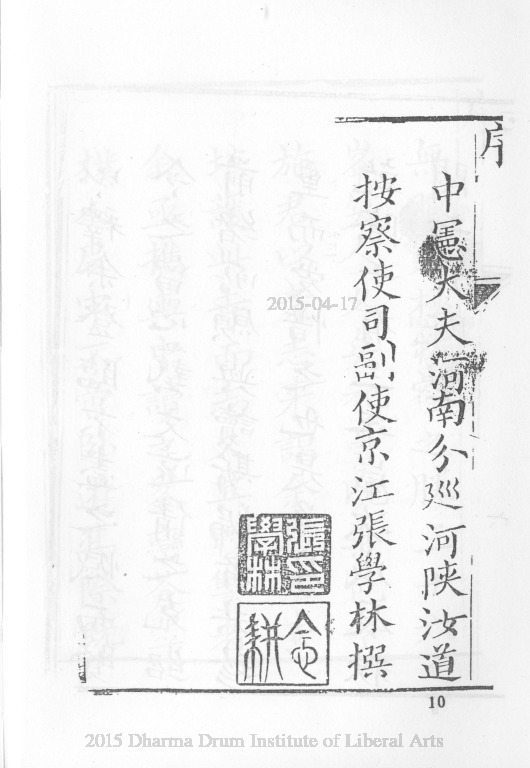 序
中憲大夫河南分廵河陝汝道
按察使司副使京江張學林撰
張學林印
念耕
2015-04-17
10
2015 Dharma Drum Institute of Liberal Arts